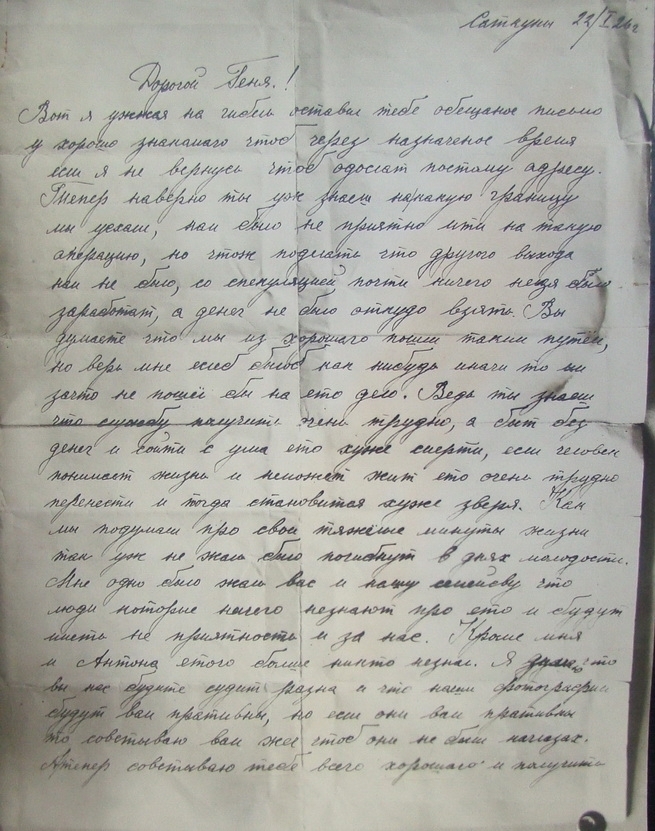 22/I 26 г
Дорогой Геня.!
Вот я ужжая на гибель оставил тебе обещаное письмо
у хорошо знакамаго чтоб через назначеное время
если я не вернусь чтоб одослат постому адресу.
Тепер наверно ты уж знаеш накакую границу
мы уехали, нам было не приятно итти на такую
операцию, но чтож поделать что другого выхода
нам не было, со спекуляцией почти ничего незя было
заработат, а денег не было откудо взять. Вы
думаете что мы из хорошаго пошли таким путём,
но верь мне еслеб былоб как нибудь иначи то ми
зачто не пошёл бы на ето дело. Ведь ты знаеш
что службу получить очень трудно, а быт без
денег и сойти с ума ето хуже смерти, если человек
понимает жизнь и неможет жит ето очень трудно
перенести и тогда становится хуже зверя. Как
мы подумали про свои тяжёлые минуты жизни
так уж не жаль было погибнут в днях молодости.
Мне одно было жаль вас и нашу семейсву что
люди которые ничего незнают про ето и будут
иметь не приятность и за нас. Кроме мня
и Антона етого больше никто незнал. Я думаю, что
вы нас будите судит разна и что наши фотографии
будут вам пративны, но если они вам пративны
то совстываю вам жеч чтоб они не были наглазах.
Атепер совстываю тебе всего хорошаго и получить